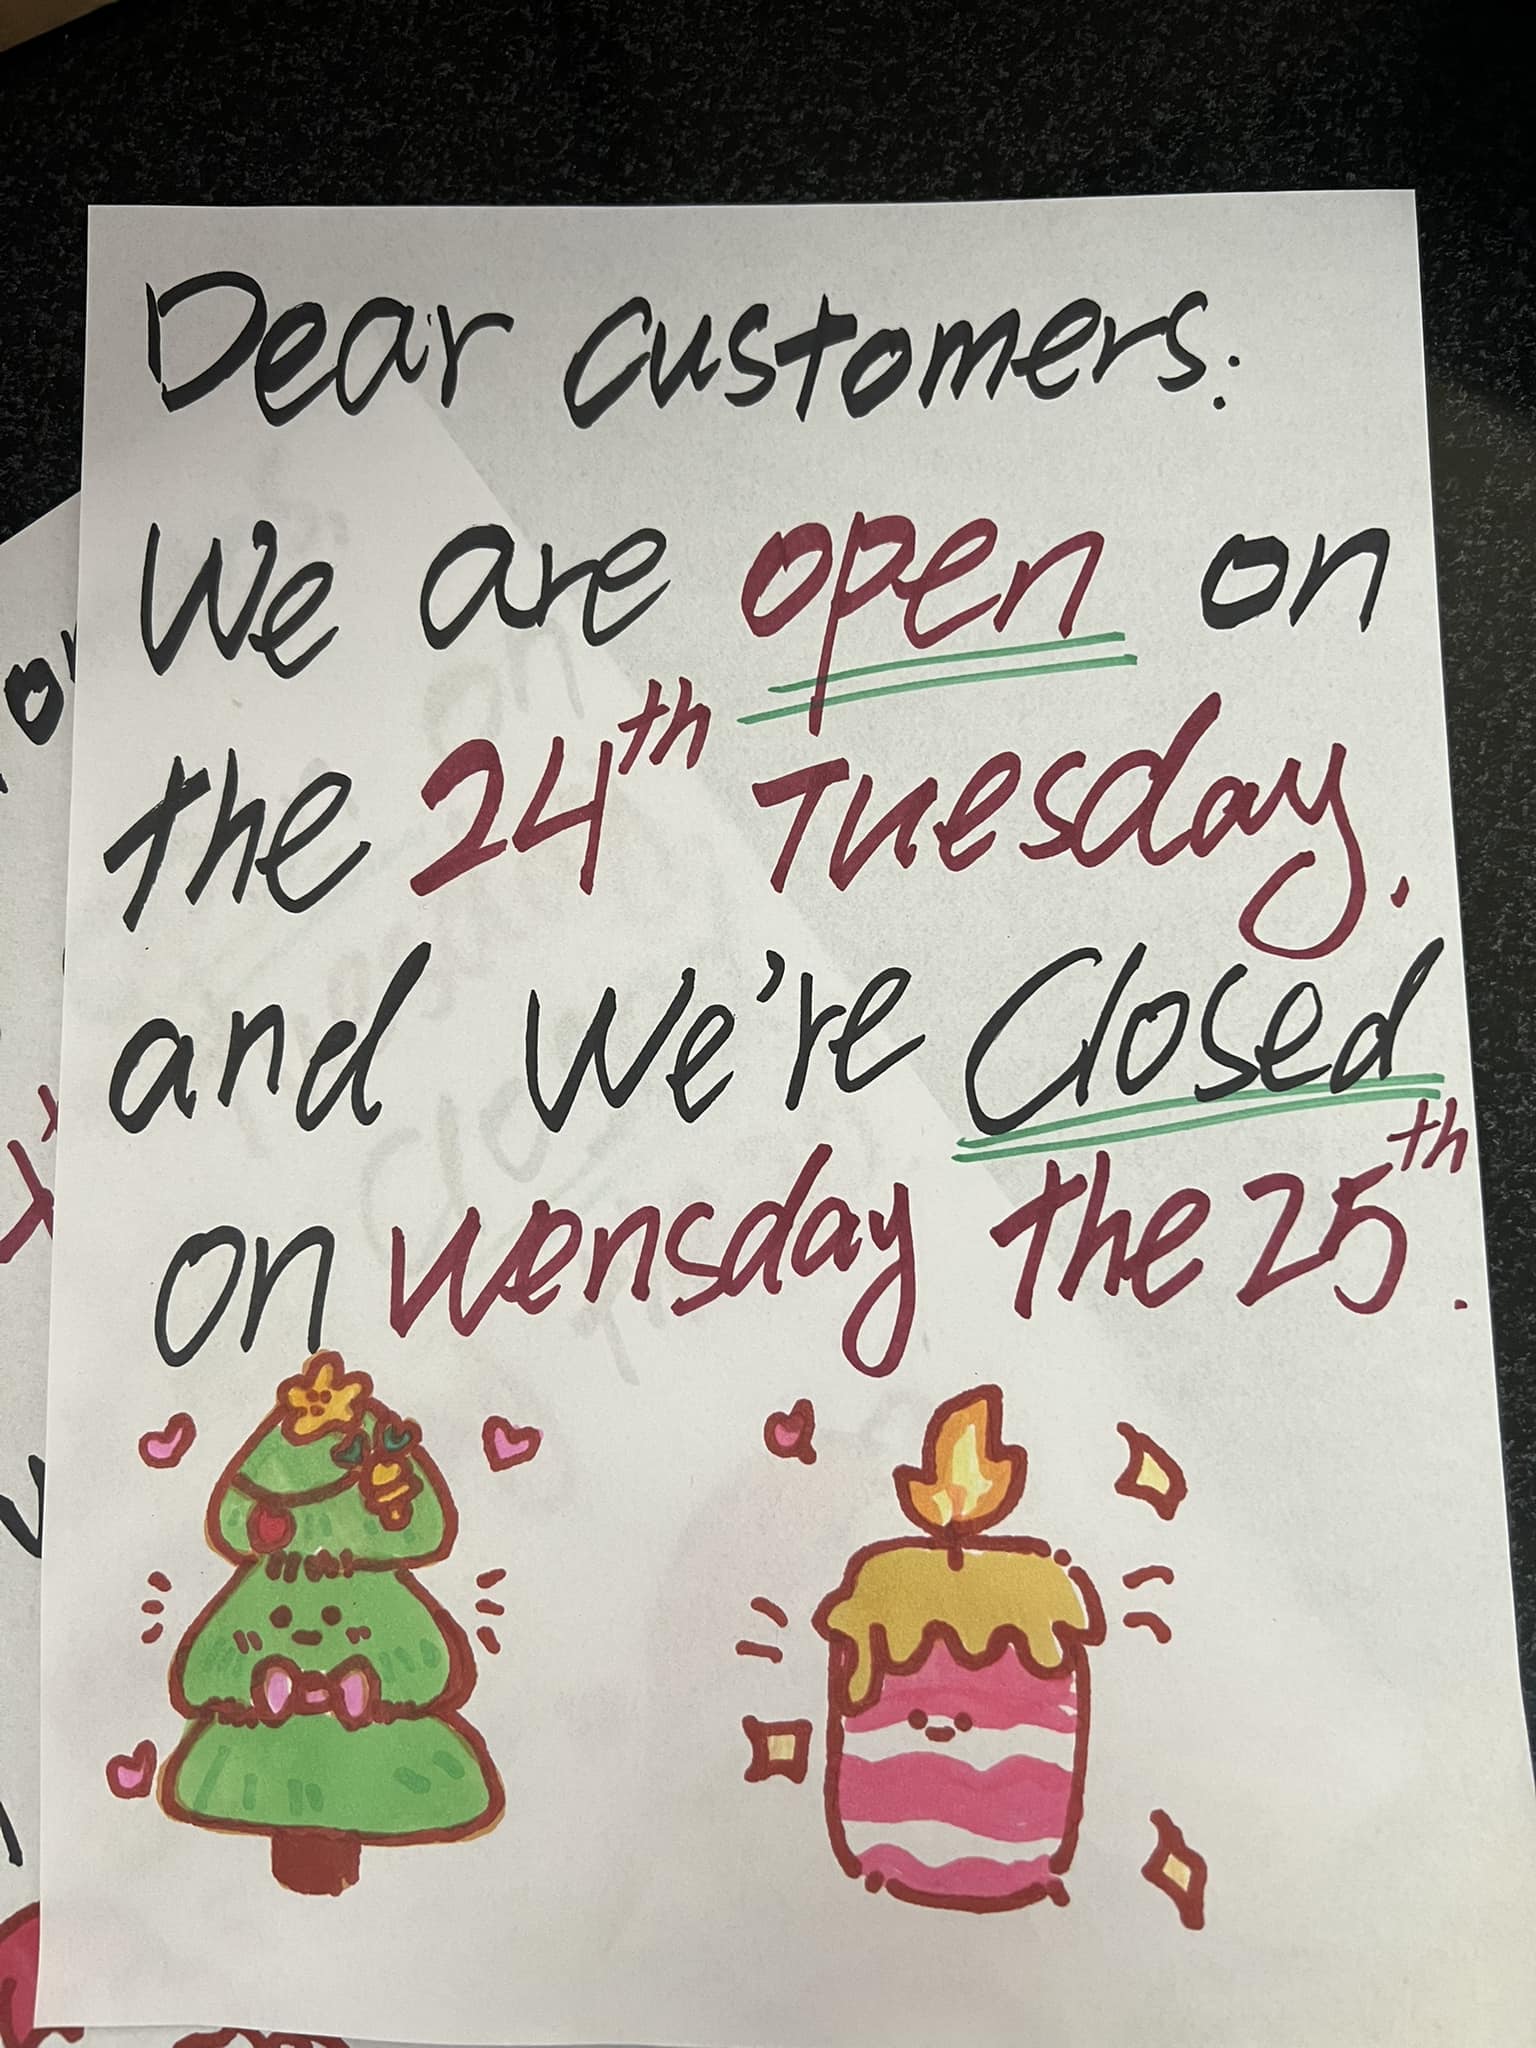 Dear customers:
We are open on
the 24th Tuesday.
and We're Closed
on wensday the 25th.